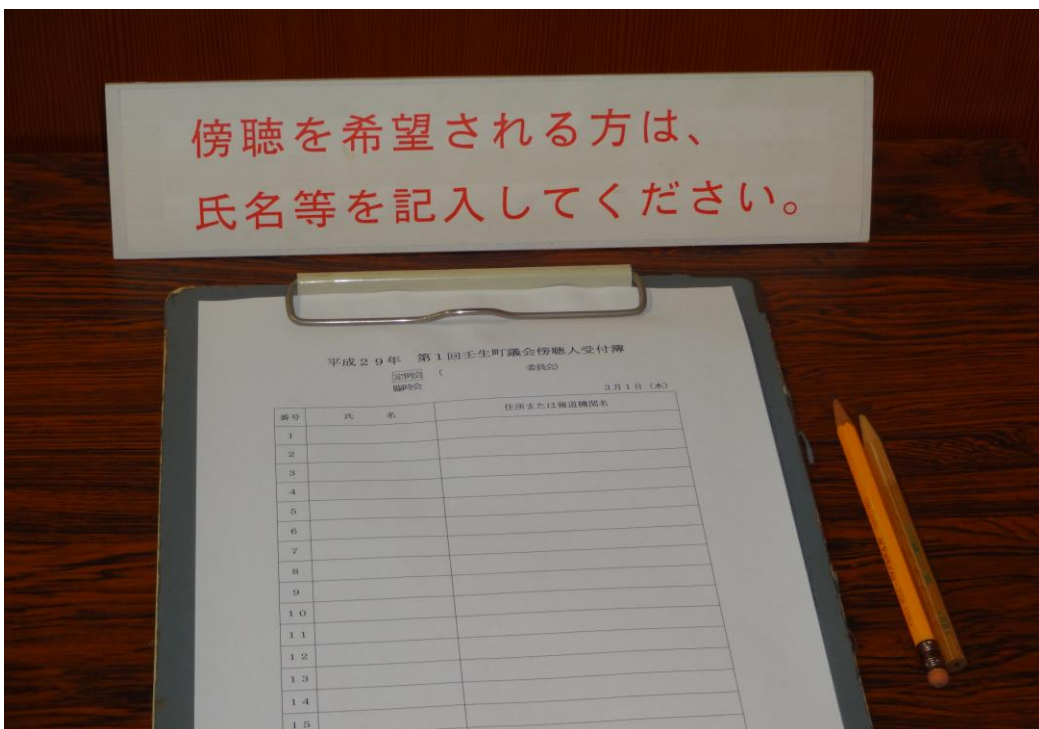 傍聴を希望される方は、
氏名等を記入してください。
平成29年 第1回壬生町議会傍聴人受付簿
定例会 ( 委員会)
臨時会
3月1日(水)
番号 氏 名 住所または報道機関名
1
2
3
4
5
6
7
8
9
10
11
12
13
14
15